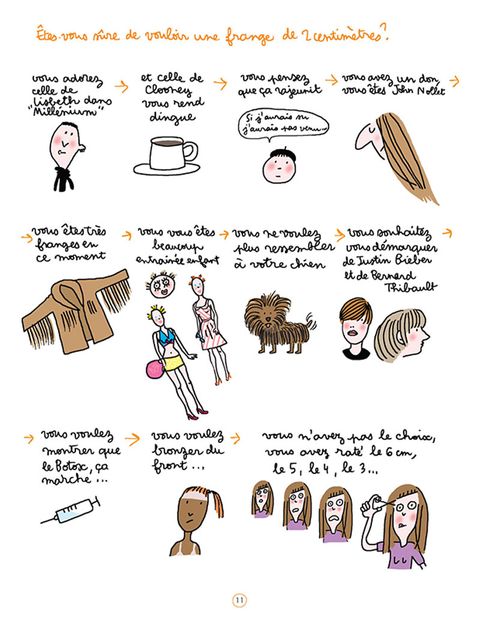 Êtes-vous sûre de vouloir une frange de 2 centimètres?
vous adorez
celle de
Lisbeth dans
"Millénium"
→ et celle de
Clooney
vous rend
dingue
→ vous pensez
que ça rajeunit
Si j'aurais su
j'aurais pas venu...
→ vous avez un don,
vous êtes John Nollet →
→ vous êtes très
franges en
ce moment
→ vous vous êtes
beaucoup
entraînée enfant
→ vous ne voulez
plus ressembler
à votre chien
→ vous souhaitez
vous démarquer
de Justin Bieber
et de Bernard
Thibault →
→ vous voulez
montrer que
le Botox, ça
marche...
→ vous voulez
bronzer du
front...
→ vous n'avez pas le choix,
vous avez raté le 6 cm,
le 5, le 4, le 3...
11